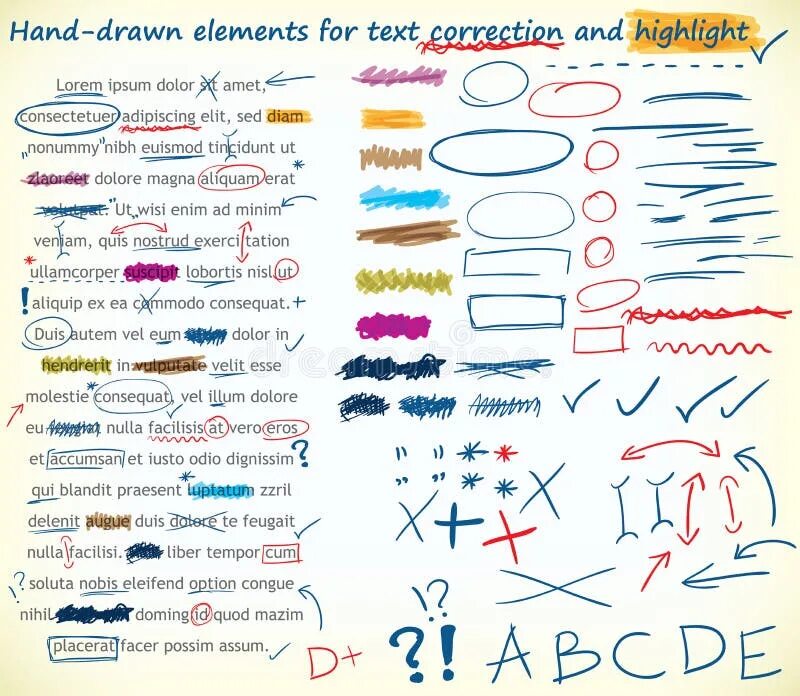 Hand-drawn elements for text correction and highlight
Lorem ipsum dolor sit amet,
consectetuer adipiscing elit, sed diam
„nonummy" nibh euismod tincidunt ut
zlaoreet dolore magna aliquam erat
volutpat." Ut wisi enim ad minim
veniam, quis nostrud exerci tation
ullamcorper suscipit lobortis nisl ut
! aliquip ex ea commodo consequat. +
Duis autem vel eum dolor in
hendrerit in vulputate velit esse
molestie consequat, vel illum dolore
eu nulla facilisis at vero eros
et accumsan et iusto odio dignissim ?
qui blandit praesent luptatum zzril
delenit augue duis dolore te feugait
nulla facilisi. liber tempor cum
!? soluta nobis eleifend option congue
nihil doming id quod mazim
placerat facer possim assum.
D+
!?
?!
A B C D E
dreamstime